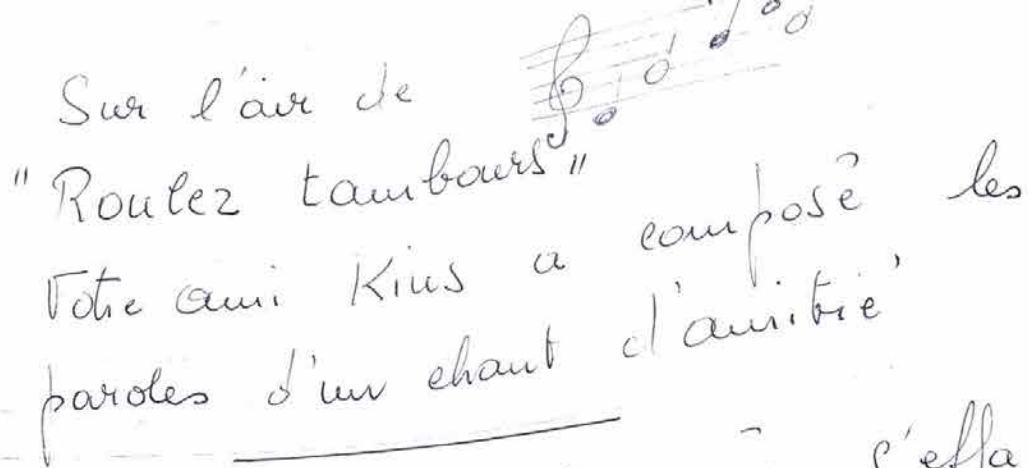 Sur l'air de
"Roulez tambours"
Votre ami Kius a composé les
paroles d'un chant d'amitié